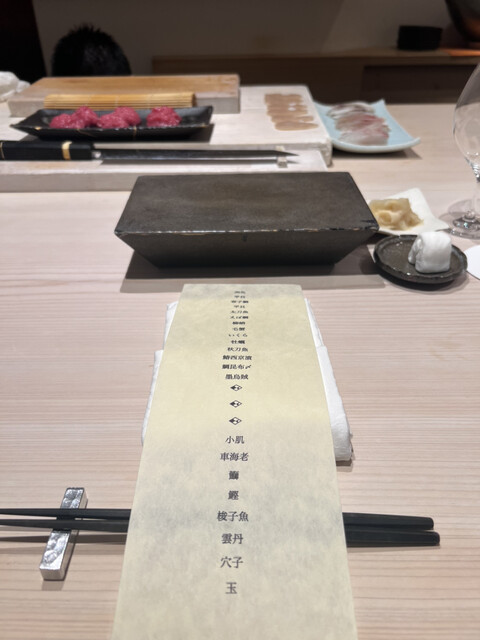 太刀魚
毛蟹
いくら
牡蠣
秋刀魚
鰆西京漬
鯛昆布〆
墨烏賊
小肌
車海老
鰤
鰹
梭子魚
雲丹
穴子
玉